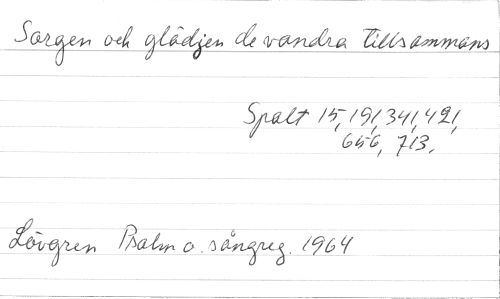 Sorgen och glädjen de vandra tillsammans
Spalt 15, 191, 341, 421,
656, 713.
Lövgren Psalm o. sångreg. 1964